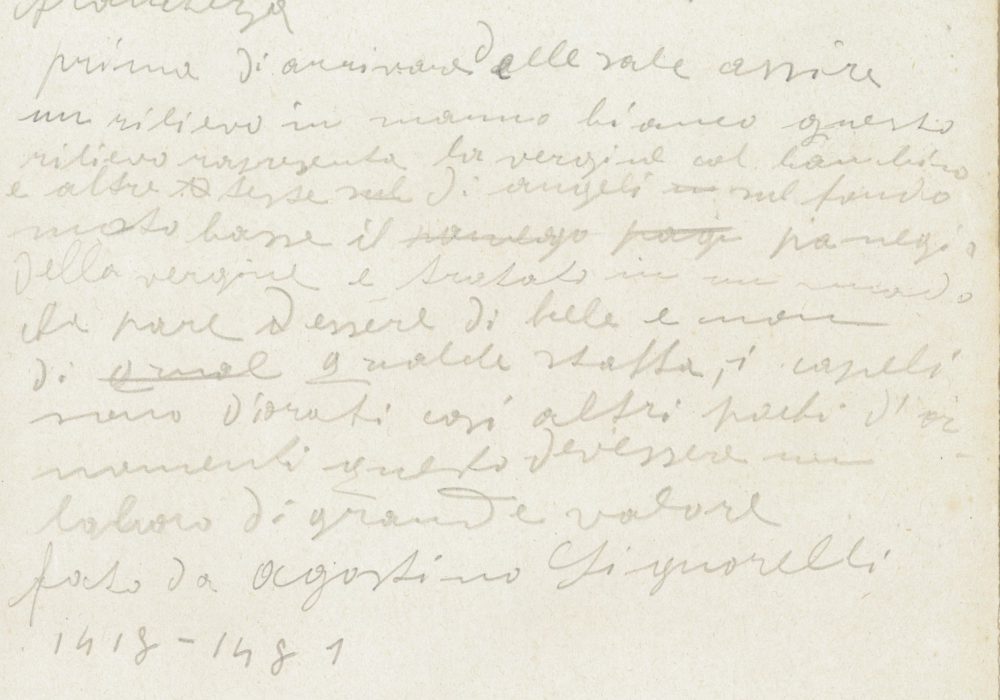 prima di arrivare delle sale assire
un rilievo in marmo bianco questo
rilievo rapresenta la vergine col bambino
e altre teste sul di angeli in sul fondo
molto basse il panego pagi panegi
della vergine e tratato in un modo
da pare d'essere di tele e non
di qual qualche staffa, i capeli
sono d'orati cosi altri parti d'or
namenti questo devessere un
laboro di grande valore
fato da agostino Signorelli
1418 - 1481